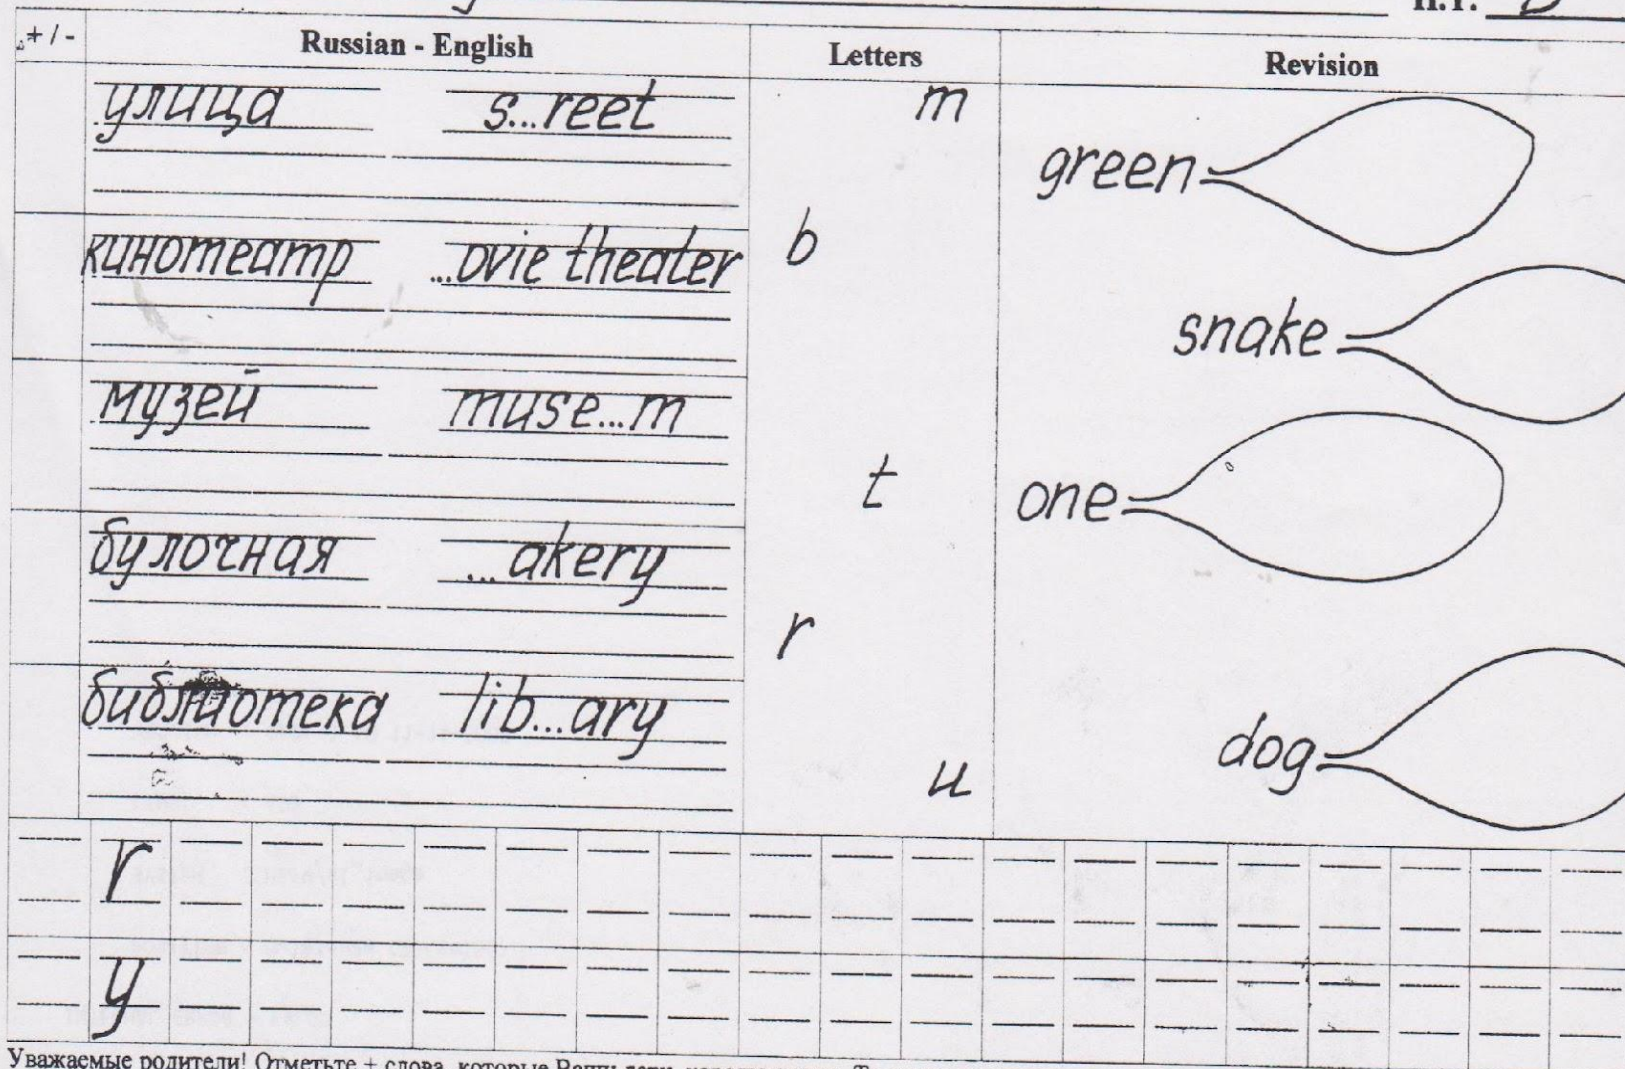 Н.Г.
+ / - Russian - English Letters Revision
улица s...reet m
green
кинотеатр ...ovie theater b
snake
музей muse...m
t one
булочная ...akery
r
библиотека lib...ary
u dog
r
y
Уважаемые родители! Отметьте + слова, которые Ваши дети